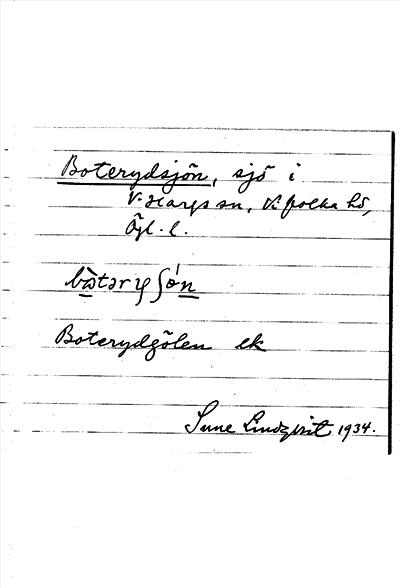 Boterydsjön, sjö i
V. Hargs sn, Vifolka hd,
Ögl. l.
Boterydgölen ek
Sune Lindqvist 1934.